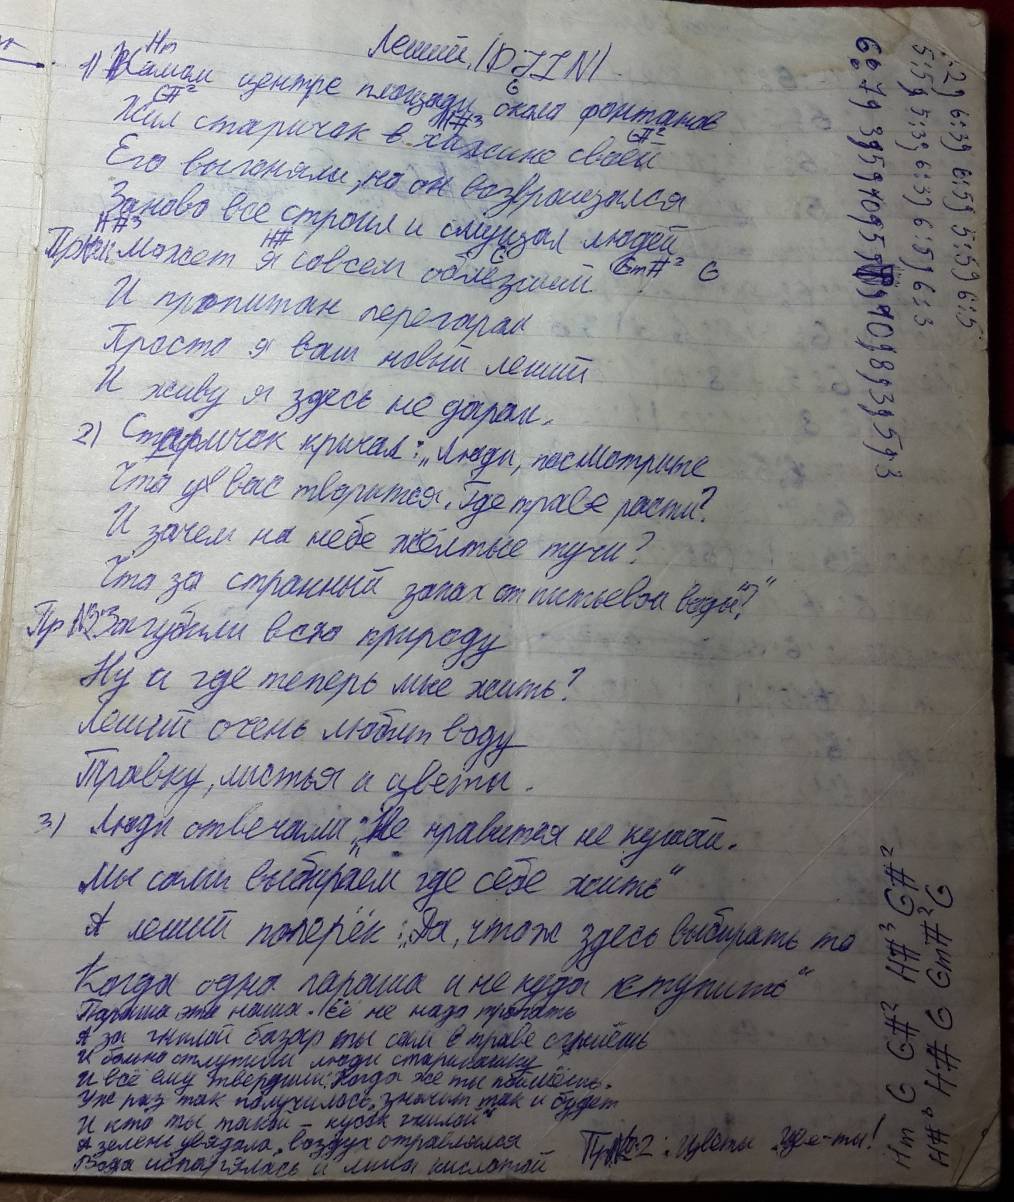 Леший. (DJIN)
Hm
1) В самом центре площади около фонтанов
G#² H#³ G G#²
Жил старичок в хижине своей
Его выгоняли, но он возвращался
Заново всё строил и смущал людей
H#³ H# G Gm#² G
Пр№1: может я совсем облезший
И пропитан перегаром
Просто я ваш новый леший
И живу я здесь не даром.
2) Старичок кричал: „Люди, посмотрите
Что у вас творится. Где траве расти?
И зачем на небе жёлтые тучи?
Что за странный запах от питьевой воды?"
Пр№2: Загубили всю природу
Ну а где теперь мне жить?
Леший очень любит воду
Травку, листья и цветы.
3) Люди отвечали: „Не нравится не кушай.
Мы сами выбираем где себе жить"
А леший поперёк: „Да, что ж здесь выбирать то
Когда одна параша и не куда ступить"
Параша это наша. Её не надо трогать
А за гнилой базар ты сам в траве сгниёшь
И больно отлупили люди старикашку
И всё ему твердили: Когда же ты поймёшь.
Уж раз так получилось, значит так и будет
И кто ты такой – кусок гнилой"
А зелень увядала, воздух отравлялся
Вода испарялась и лила кислотой
Пр№2: цветы где-ты!
Hm G G#² H#³ G#²
H#, H# G Gm#² G